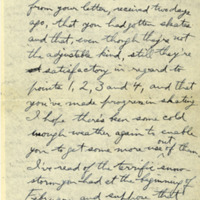 from your letter, received two days
ago, that you had gotten skates
and that, even though they're not
the adjustable kind, still they're
satisfactory in regard to
points 1, 2, 3 and 4, and that
you've made progress in skating.
I hope there's been some cold
enough weather again to enable
you to get some more use out of them.
I've read of the terrific snow-
storm you had at the beginning of
February and suppose that